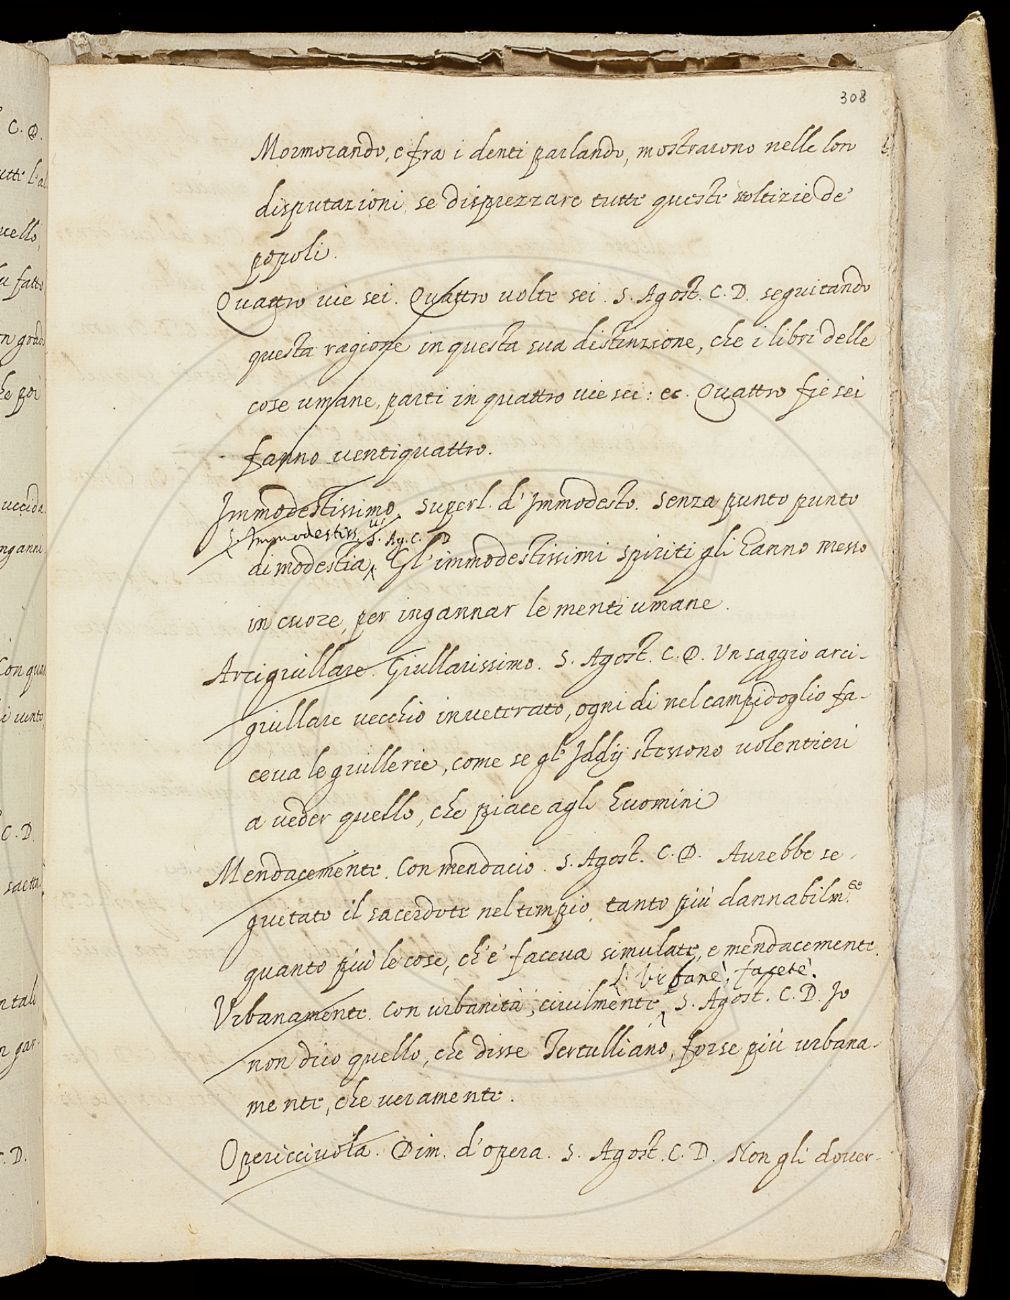 308
Mormorando, e fra i denti parlando, mostrarono nelle loro
disputazioni se disprezzare tutte queste stoltizie de'
popoli.
Quattro vie sei. Quattro volte sei. S. Agost. C. D. seguitando
questa ragione in questa sua distinzione, che i libri delle
cose umane, partì in quattro vie sei: ec. Quattro fie sei
fanno ventiquattro.
Immodestissimo. Superl. d'Immodesto. Senza punto punto
Immodestiss. S. Ag. C. D
di modestia, Gl'immodestissimi spiriti gli hanno messo
in cuore, per ingannar le menti umane.
Arcigiullare. Giullarissimo. S. Agost. C. D. Un saggio arci-
giullare vecchio invetrato, ogni dì nel campidoglio fa-
ceva le giullerie, come se gl'Iddij stessono volentieri
a veder quello, che piace agli huomini
Mendacemente. Con mendacio. S. Agost. C. D. Avrebbe se-
guitato il sacerdote nel tempio, tanto più dannabilm.te
quanto più le cose, ch'e' faceva simulate, e mendacemente.
l. Urbanè, facetè.
Urbanamente. Con urbanità, civilmente, S. Agost. C. D. Io
non dico quello, che disse Tertulliano, forse più urbana-
mente, che veramente.
Opericciuola. Dim. d'opera. S. Agost. C. D. Non gli dover-
C. D.